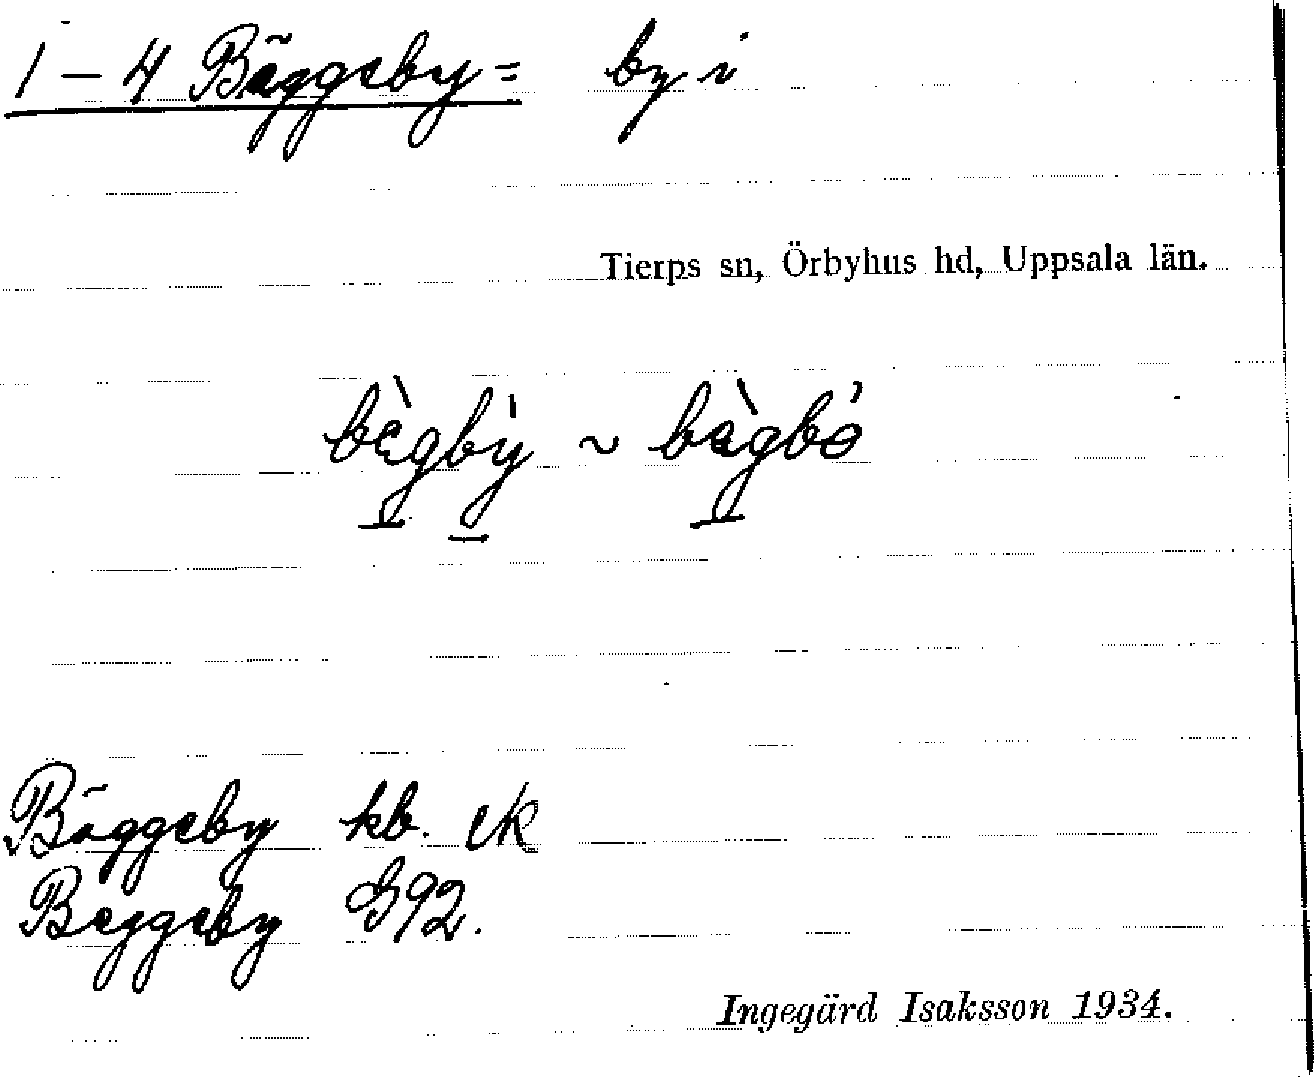 1 – 4 Bäggeby = by i
Tierps sn, Örbyhus hd, Uppsala län.
bὲgbỳ ~ bὲgbó
Bäggeby kb. ek
Beggeby G92.
Ingegärd Isaksson 1934.